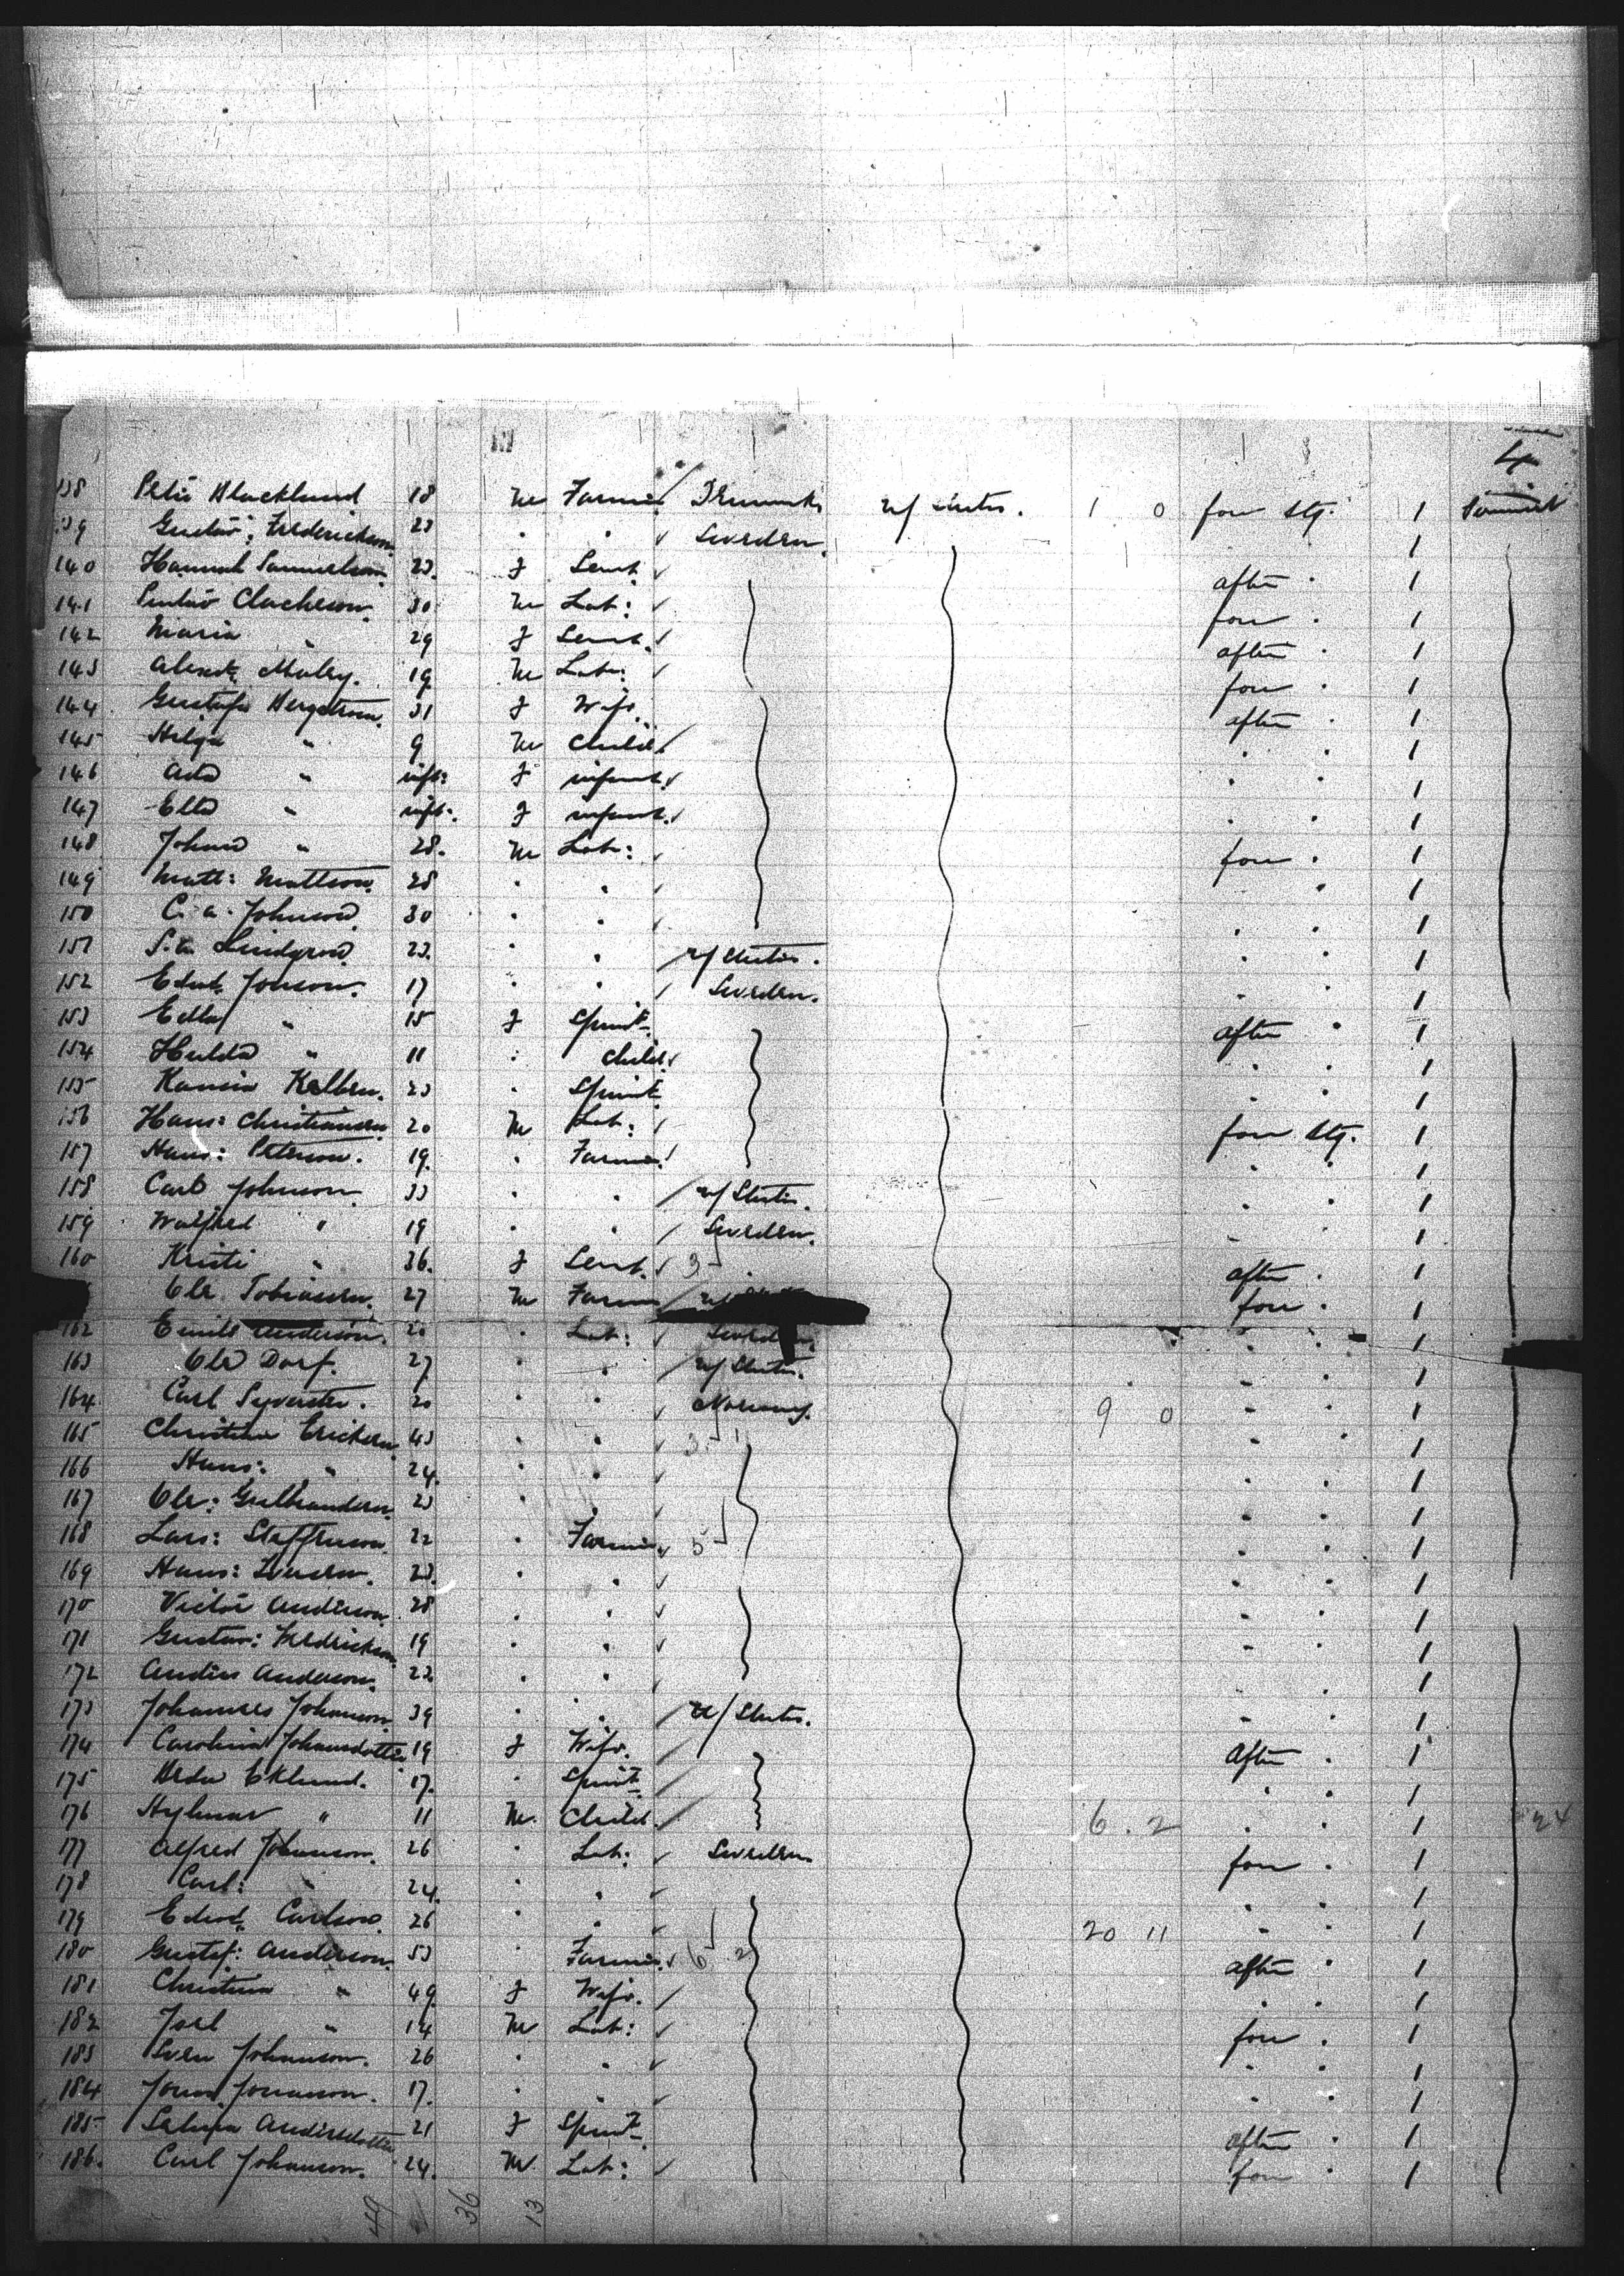 4
138 Peter Blacklund 18 M Farmer Denmark U/ States. 1 0 fore Stg. 1
139 Gustav: Frederickson. 23 " " Sweden. 1
140 Hannah Samuelson. 23. F Servt. after " 1
141 30 M Lab: fore " 1
142 Maria " 29 F Servt. after " 1
143 19 M Lab: fore " 1
144 Gustafa Bergstrom. 31 F Wife. after " 1
145 " 9 M Child " " 1
146 Ada " inft: F infant. " " 1
147 " inft: F infant. " " 1
148 Johan " 28. M Lab: fore " 1
149 Matt: Mattson. 28 " " " 1
150 C. A. Johnson 30 " " " " 1
151 23. " " U/ States. " " 1
152 Edwd. Jonson. 17 " " Sweden. " 1
153 Edla " 15 F Spinst. after " 1
154 Hulda " 11 " Child " " 1
155 23 " Spinst " " 1
156 Hans: Christiansen 20 M Lab: fore Stg. 1
157 Hans: Peterson. 19. " Farmer " " 1
158 Carl Johnson 33 " " U/ States. " " 1
159 Walfred " 19 " " Sweden. " " 1
160 Kristi " 36. F Servt. 3 after " 1
Ole. Tobiasen. 27 M Farmer fore " 1
162 Emile Anderson. 20 " Lab: Sweden. " " 1
163 Ole Dorf. 27 " " U/ States. " " 1
164 Carl Syverster. 20 " " Norway. 9 0 " " 1
165 Christian Ericksen 43 " " 3 1 " " 1
166 Hans: " 24. " " " " 1
167 Ole: Gulbrandsen. 23 " " " " 1
168 Lars: Steffenson. 22 " Farmer 5 " " 1
169 Hans: 23. " " " " 1
170 Victor Anderson. 28 " " " " 1
171 Gustav: Fredrickson. 19 " " " " 1
172 Anderson. 22 " " " " 1
173 Johannes Johanson 39 " " U/ States. " " 1
174 Carolina Johansdotter 19 F Wife. After " 1
175 Eklund. 17. " Spinst. " " 1
176 Hylmar " 11 M. Child. 6. 2 " " 1 24
177 Alfred Johanson. 26 " Lab: Sweden fore " 1
178 Carl: " 24. " " " " 1
179 Edwd. Carlson. 26 " " 20 11 " " 1
180 Gustaf: Anderson. 53 " Farmer. 6 2 after " 1
181 Christina " 49. F Wife. " " 1
182 Joel " 14 M Lab: fore " 1
183 Sven Johanson. 26 " " " " 1
184 Jonas Jonasson. 17. " " " " 1
185 Andersdotter 21 F Spinst. after " 1
186. Carl Johanson. 24. M. Lab: fore " 1
49 36 13